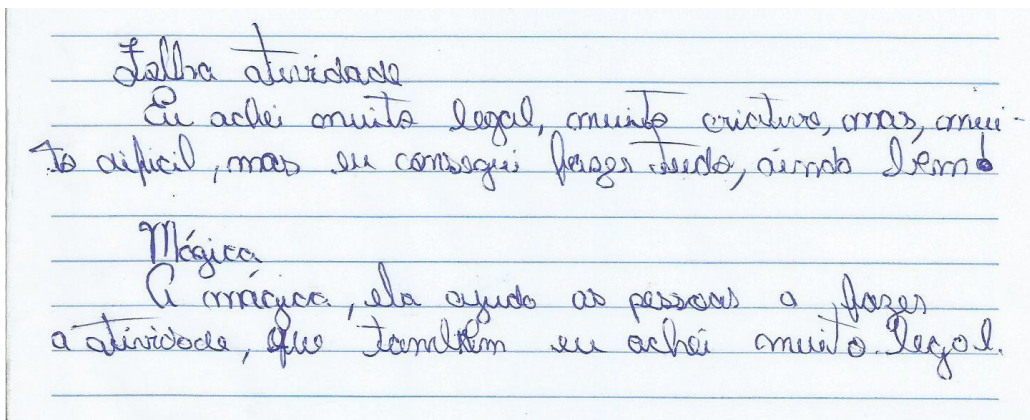 Folha atividade
Eu achei muito legal, muito criativo, mas, mui-
to dificil, mas eu consegui fazer tudo, ainda bem!
Mágica
A mágica, ela ajuda as pessoas a fazer
a atividade, que também eu achei muito legal.